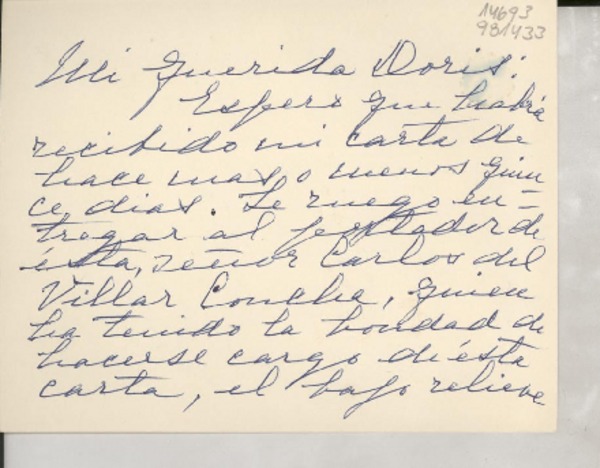 14693
981433
Mi querida Doris:
Espero que habrá
recibido mi carta de
hace mas o menos quin
ce dias. Le ruego en=
tregar al portador de
ésta, señor Carlos del
Villar Concha, quien
ha tenido la bondad de
hacerse cargo de ésta
carta, el bajo relieve